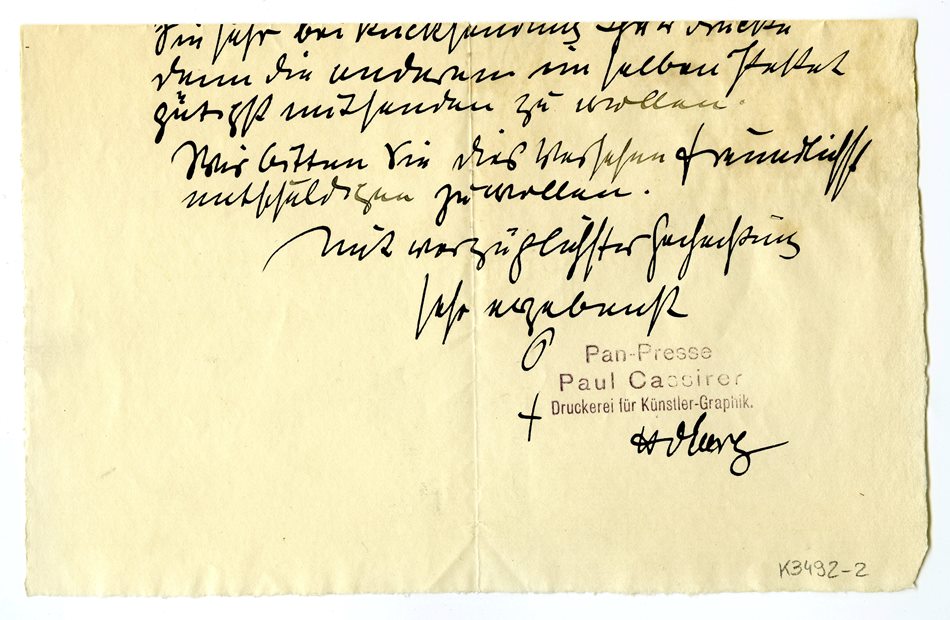 Sie sehr bei Rücksendung Ihrer Drucke
denn die anderen im selben Paket
gütigst mitsenden zu wollen.
Wir bitten Sie dies Versehen freundlichst
entschuldigen zu wollen.
Mit vorzüglichster Hochachtung
sehr ergebenst
Pan-Presse
Paul Cassirer
Druckerei für Künstler-Graphik.
K3492-2